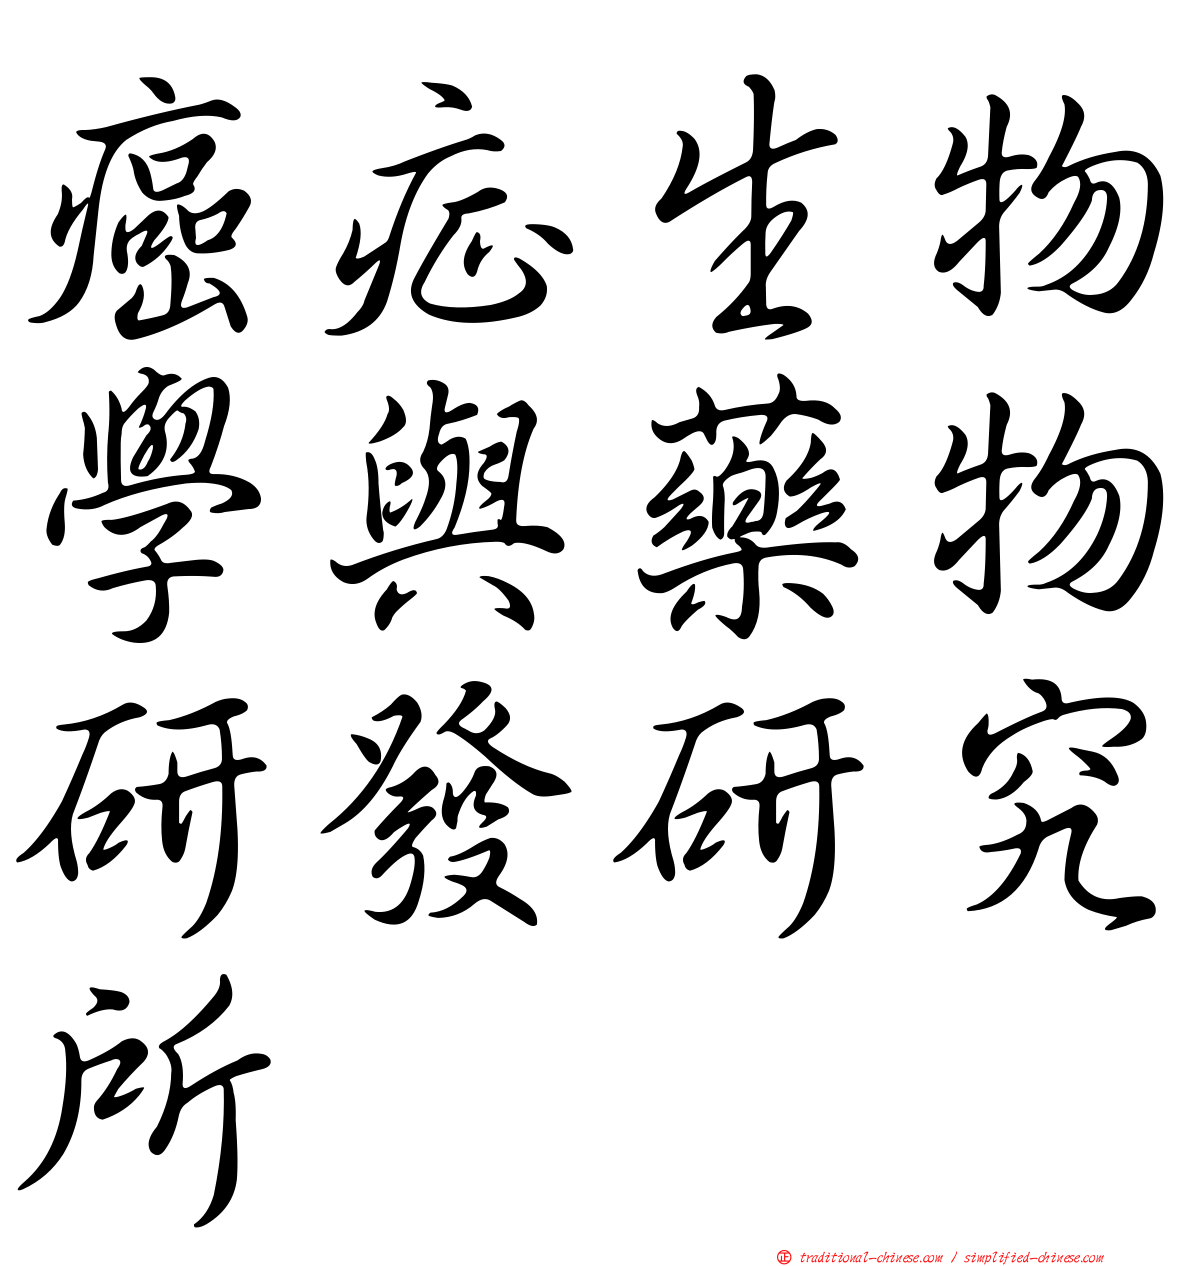 癌症生物
學與藥物
研發研究
所
㊣ traditional-chinese.com / simplified-chinese.com